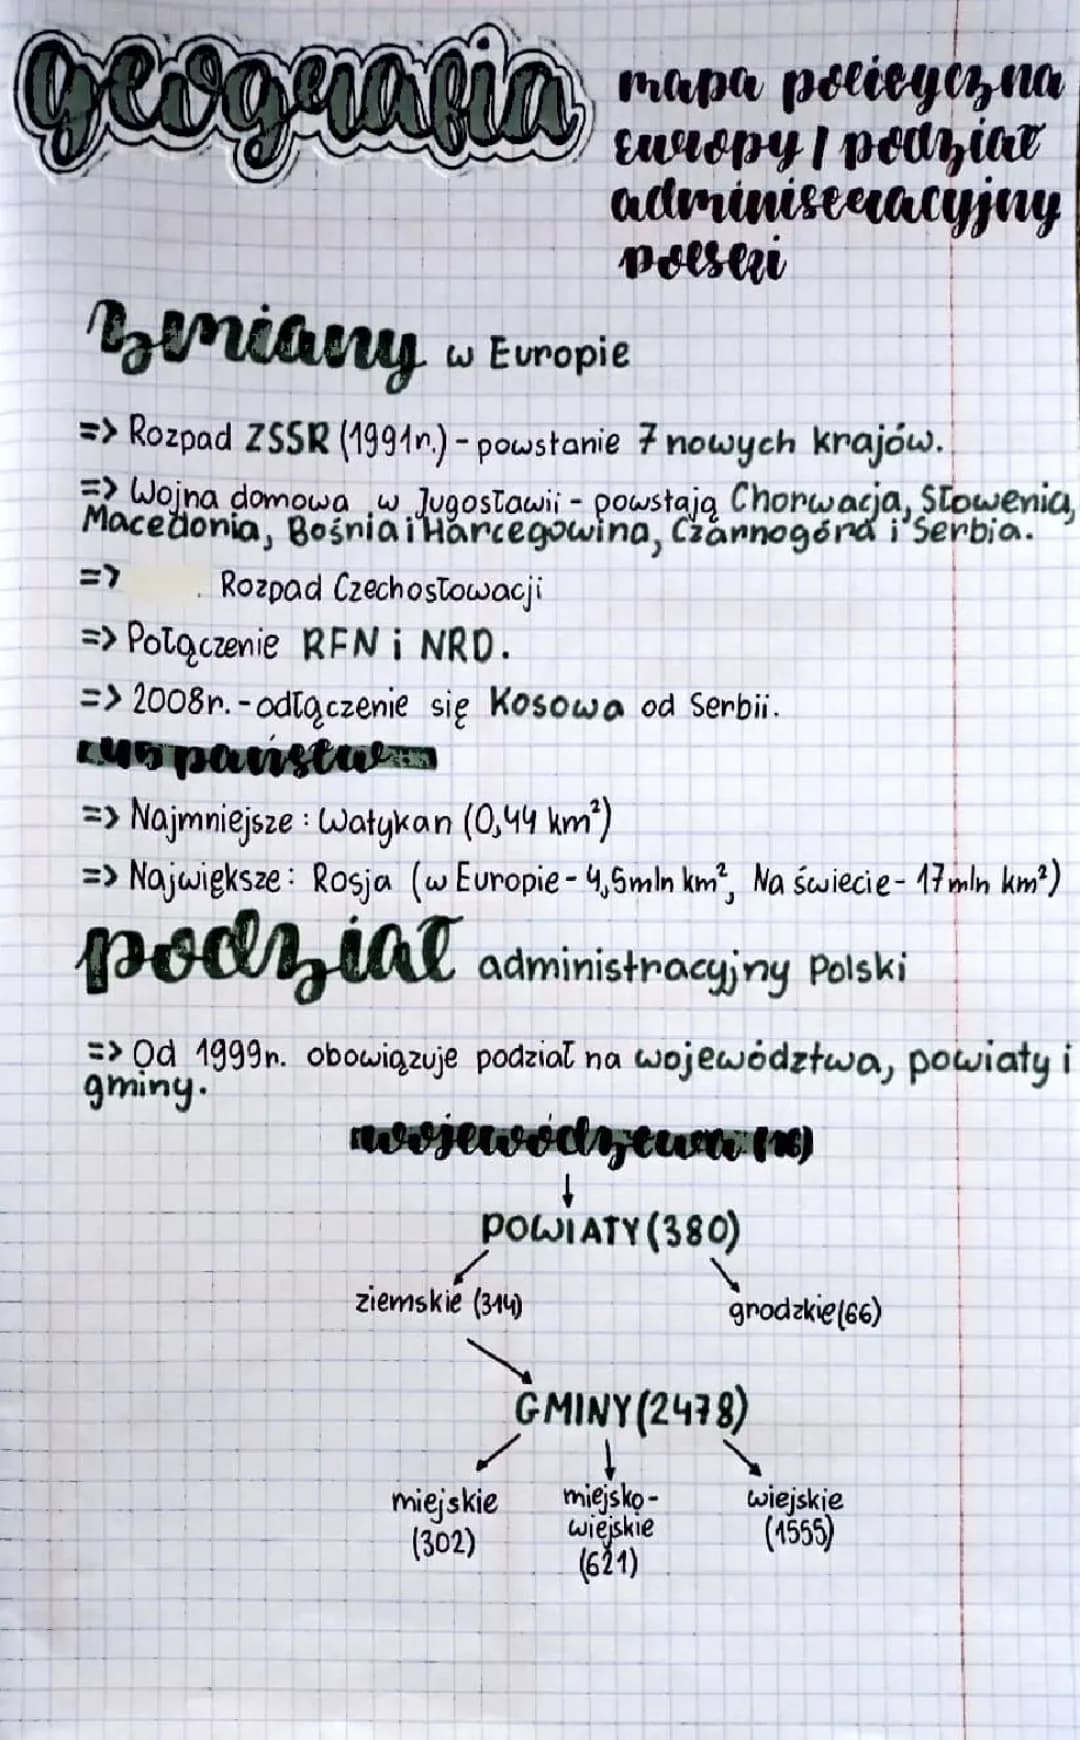 geografia
mapa polityczna
Europy / podział
administracyjny
Polski
zmiany w Europie
=> Rozpad ZSSR (1991r.) - powstanie 7 nowych krajów.
=> Wojna domowa w Jugosławii - powstają Chorwacja, Słowenia,
Macedonia, Bośnia i Harcegowina, Czarnogóra i Serbia.
=> Rozpad Czechosłowacji
=> Połączenie RFN i NRD.
=> 2008r. - odłączenie się Kosowa od Serbii.
45 państw
=> Najmniejsze : Watykan (0,44 km²)
=> Największe : Rosja (w Europie - 4,5mln km², Na świecie - 17mln km²)
podział administracyjny Polski
=> Od 1999r. obowiązuje podział na województwa, powiaty i
gminy.
województwa (16)
↓
POWIATY (380)
ziemskie (314) grodzkie (66)
GMINY (2478)
miejskie miejsko- wiejskie
(302) wiejskie (1555)
(621)